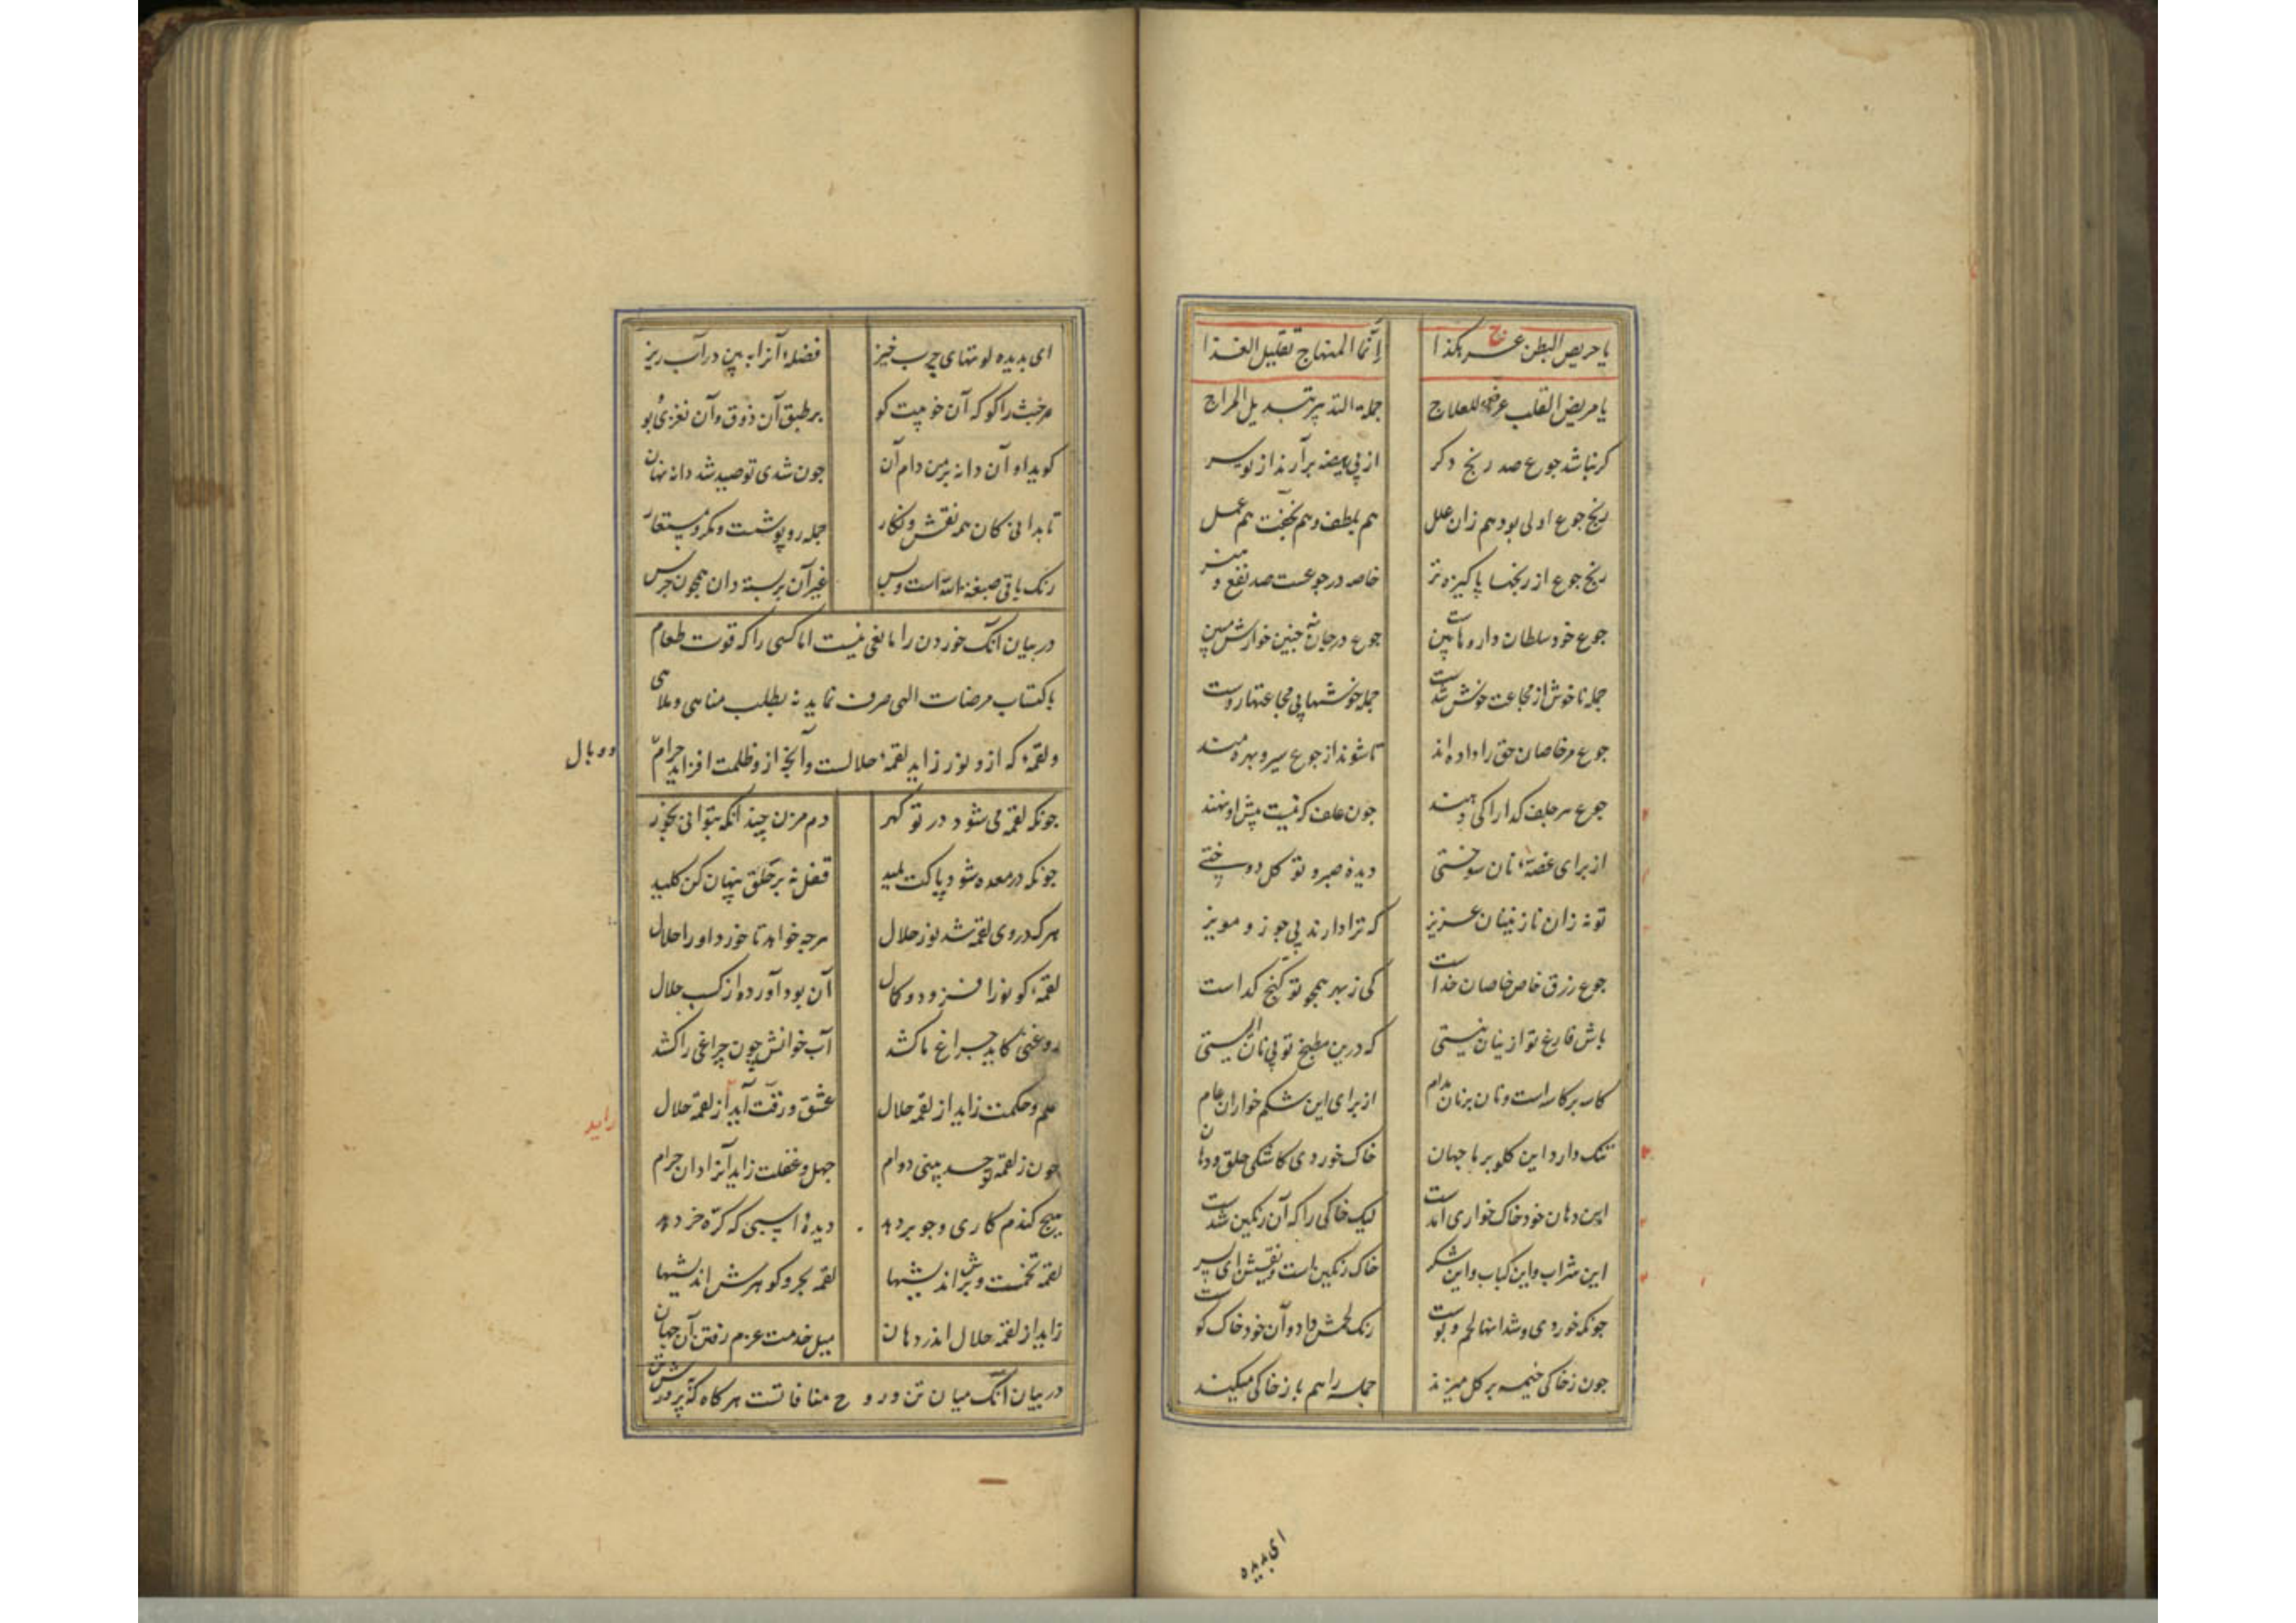 یا حریص البطن عرّج هکذا    إنّما المنهاج تقلیل الغذا
یا مریض القلب عرض للعلاج    جملة التدبیر تبدیل المزاج
کر نباشد جوع صد رنج دکر    از پی هیضه برآرند از تو سر
رنج جوع اولی بود هم زان علل    هم بلطف و هم بخفّت هم عمل
رنج جوع از رنجها پاکیزه تر    خاصه در جوعست صد نفع و هنر
جوع خود سلطان داروهاست هین    جوع در جان نه چنین خوارش مبین
جمله ناخوش از مجاعت خوش شدست    جمله خوشها بی مجاعتها ردست
جوع مر خاصان حق را داده اند    تا شوند از جوع سیر و بهره مند
جوع هر جلف کدا را کی دهند    چون علف کم نیست پیش او نهند
از برای غصهٔ نان سوختی    دیدهٔ صبر و توکل دوختی
تو نه زان نازنینان عزیز    که ترا دارند بی جوز و مویز
جوع رزق خاص خاصان خداست    کی زبر همچو تو کنج کداست
باش فارغ تو از ینان نیستی    که درین مطبخ تو بی نان ایستی
کاسه بر کاسه است و نان بر نان مدام    از برای این شکم خواران عام
ننک دارد این کلو بر ما جهان    خاک خوردی کاشکی حلق و دهان
این دهان خود خاک خواری آمدست    لیک خاکی را که آن رنکین شدست
این شراب و این کباب و این شکر    خاک رنکین است و نقشین ای پسر
چونکه خوردی و شد اینها لحم و پوست    رنک لحمش داد و آن خود خاک کوست
چون ز خاکی خیمه بر کل میزند    جمله را هم باز خاکی میکند
ای بدیده
ای بدیده لوتهای چرب خیز    فضلهٔ آنرا ببین در آب ریز
مر خبث را کو که آن خوبیت کو    بر طبق آن ذوق و آن نغزی و بو
کوید او آن دانه بد من دام آن    چون شدی تو صید شد دانه نهان
تا بدانی کان همه نقش و نکار    جمله روپوشست و مکر و مستعار
رنک باقی صبغة الله است و بس    غیر آن بر بسته دان همچون جرس
در بیان آنک خوردن را مانعی نیست اما کسی را که قوت طعام
باکتساب مرضات الهی صرف نماید نه بطلب مناهی و ملاهی
و لقمهٔ که ازو نور زاید لقمهٔ حلالست و آنچه ازو ظلمت افزاید حرام
و وبال
چونکه لقمه می شود در تو کهر    دم مزن چندانکه بتوانی بخور
چونکه در معده شود پاکت پلید    قفل نه بر حلق پنهان کن کلید
هر که در وی لقمه شد نور جلال    هرچه خواهد تا خورد او را حلال
لقمهٔ کو نور افزود و کمال    آن بود آورده از کسب حلال
روغنی کاید چراغ ما کشد    آب خوانش چون چراغی را کشد
علم و حکمت زاید از لقمه حلال    عشق و رقّت آید از لقمه حلال
زاید
چون ز لقمه تو حسد بینی دوام    جهل و غفلت زاید آنرا دان حرام
هیچ کندم کاری و جو بر دهد    دیدهٔ اسپی که کرّه خر دهد
لقمه تخمست و برش اندیشها    لقمه بحر و کوهرش اندیشها
زاید از لقمه حلال اندر دهان    میل خدمت عزم رفتن آن جهان
در بیان آنک میان تن و روح منافاتست هر کاه که پرورش تن